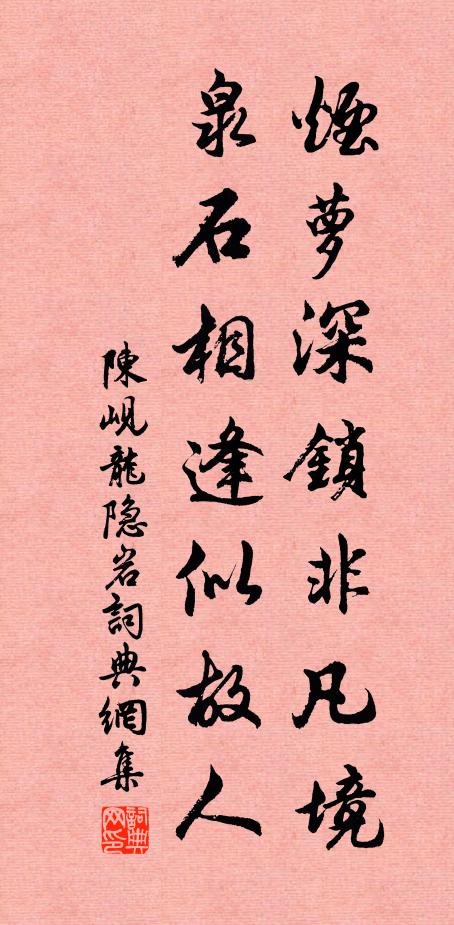 煙萝深鎖非凡境
泉石相逢似故人
陳峴龍隐岩詞典網集
詞典网印